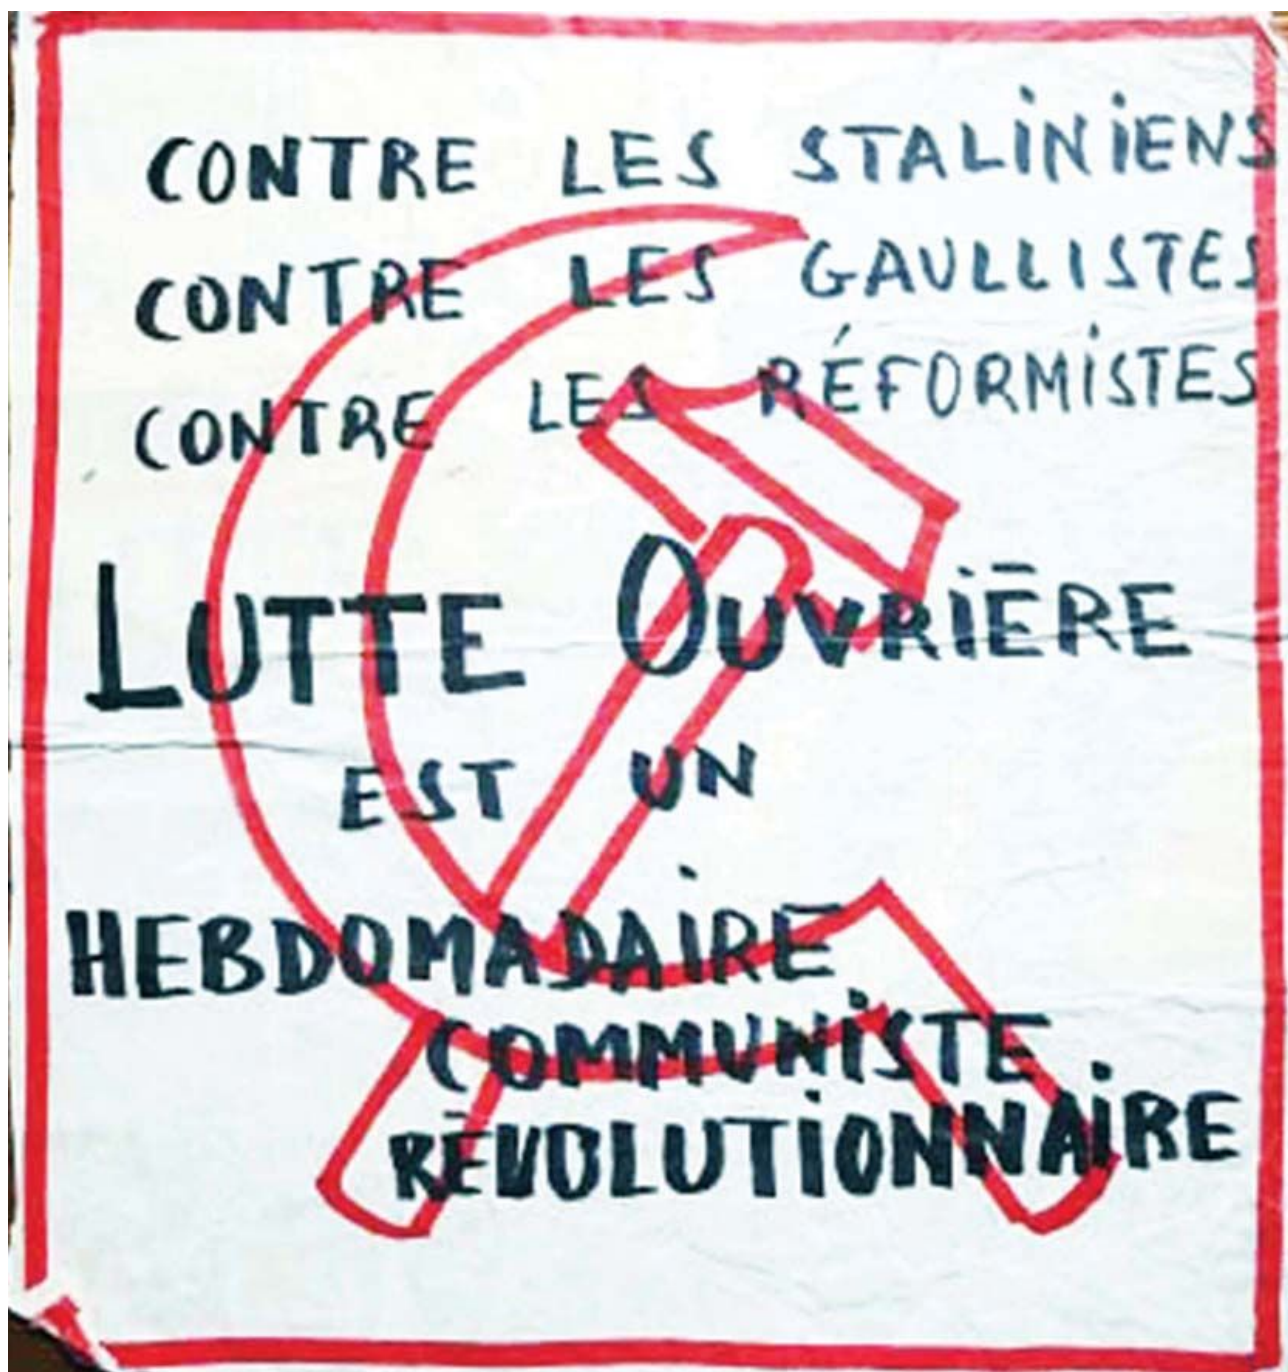 CONTRE LES STALINIENS
CONTRE LES GAULLISTES
CONTRE LES RÉFORMISTES
LUTTE OUVRIÈRE
EST UN
HEBDOMADAIRE
COMMUNISTE
RÉVOLUTIONNAIRE